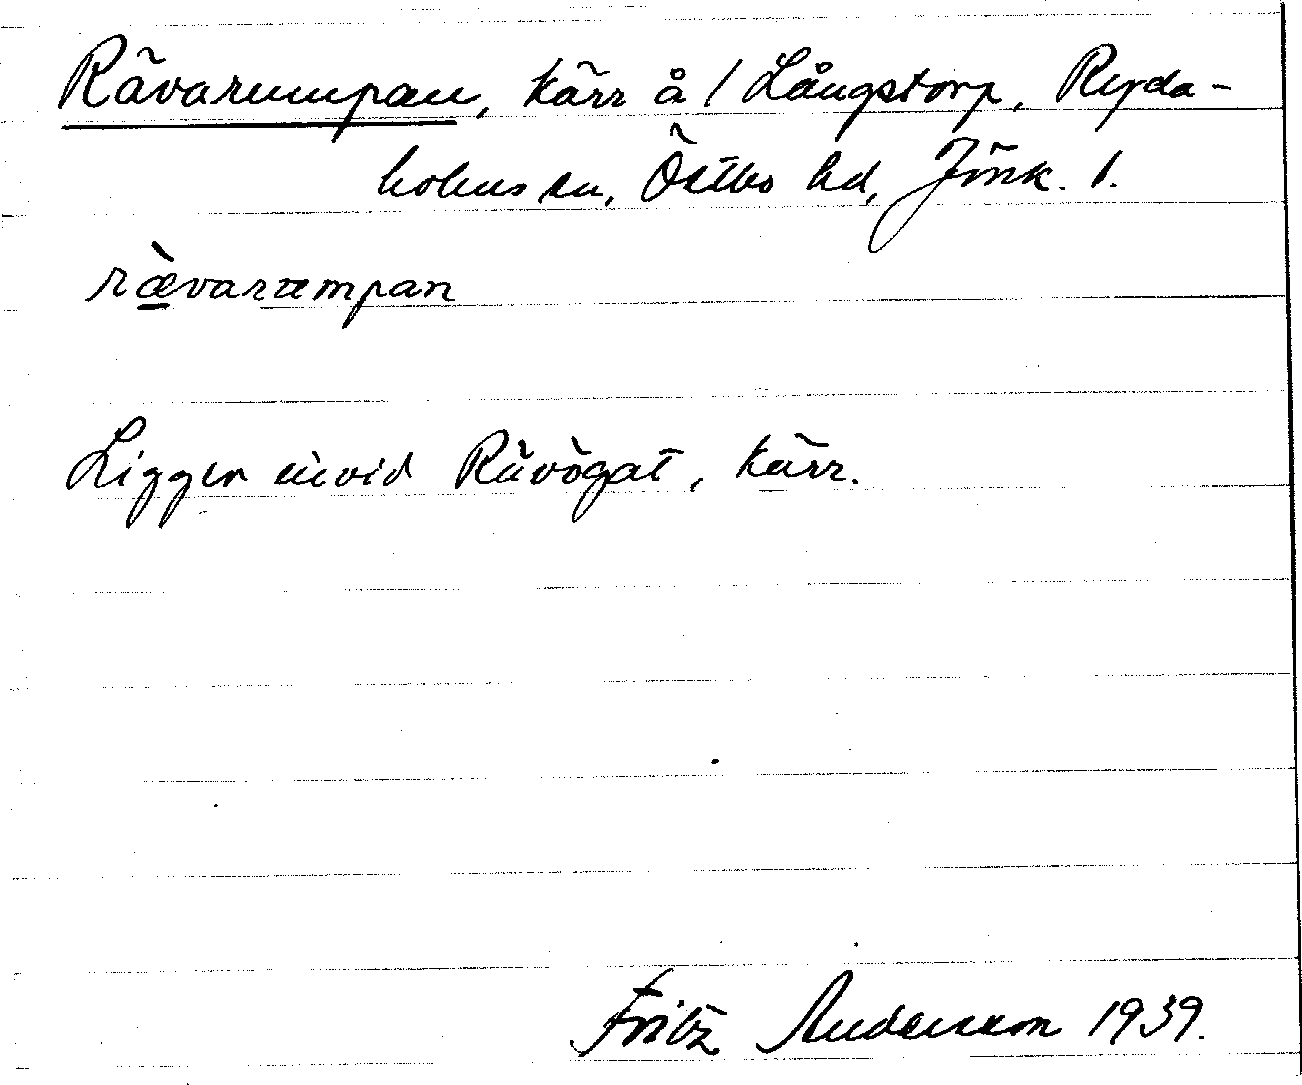 Rävarumpan, kärr å / Långstorp, Ryda-
holms sn, Östbo hd, Jönk. l.
rævarumpan
Ligger invid Rävögat, kärr.
Fritz Andersson 1939.